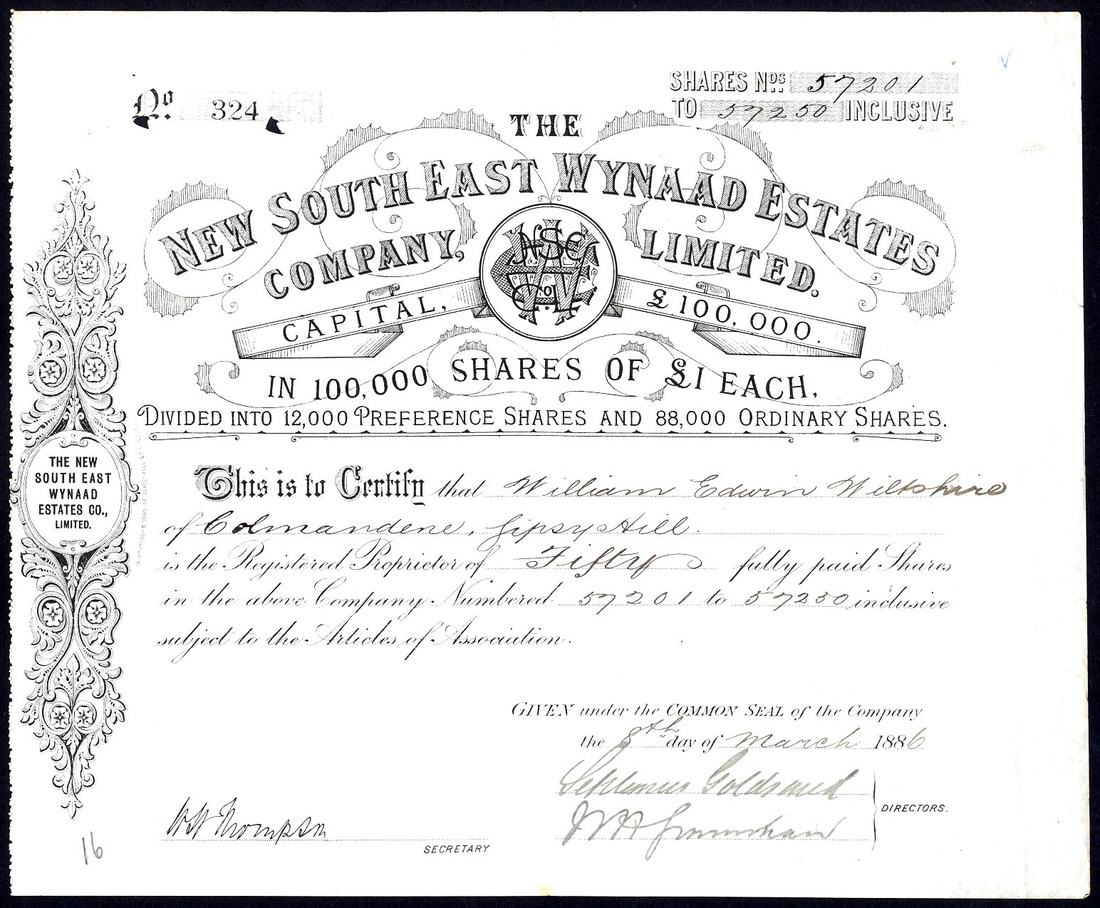 No. 324
SHARES Nos. 57201
TO 57250 INCLUSIVE
THE
NEW SOUTH EAST WYNAAD ESTATES
COMPANY, LIMITED.
CAPITAL, £100,000.
IN 100,000 SHARES OF £1 EACH,
DIVIDED INTO 12,000 PREFERENCE SHARES AND 88,000 ORDINARY SHARES.
THE NEW
SOUTH EAST
WYNAAD
ESTATES CO.,
LIMITED.
This is to Certify that William Edwin Wiltshire
of Colmandene, Gipsy Hill.
is the Registered Proprietor of Fifty fully paid Shares
in the above Company Numbered 57201 to 57250 inclusive
subject to the Articles of Association.
GIVEN under the COMMON SEAL of the Company
the 8th day of March 1886
Septimus
DIRECTORS.
Thompson
SECRETARY
16